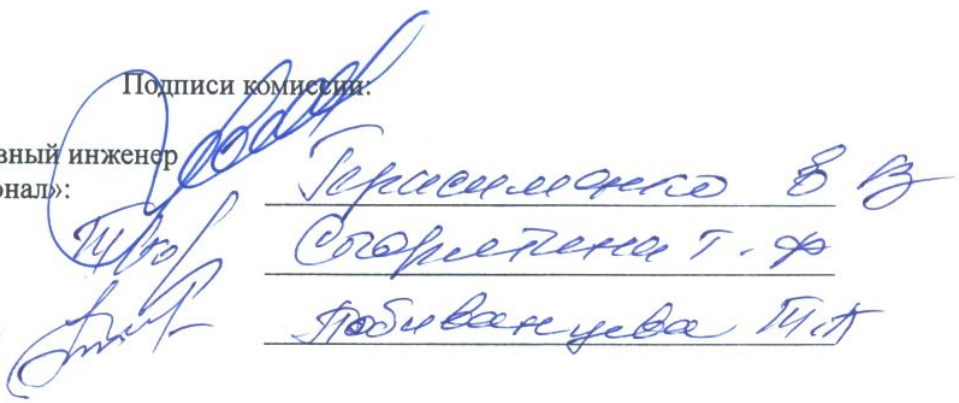 Подписи комиссии:
вный инженер
онал»:
Герасименко В В
Т. Ф
Побиванцева Т.А